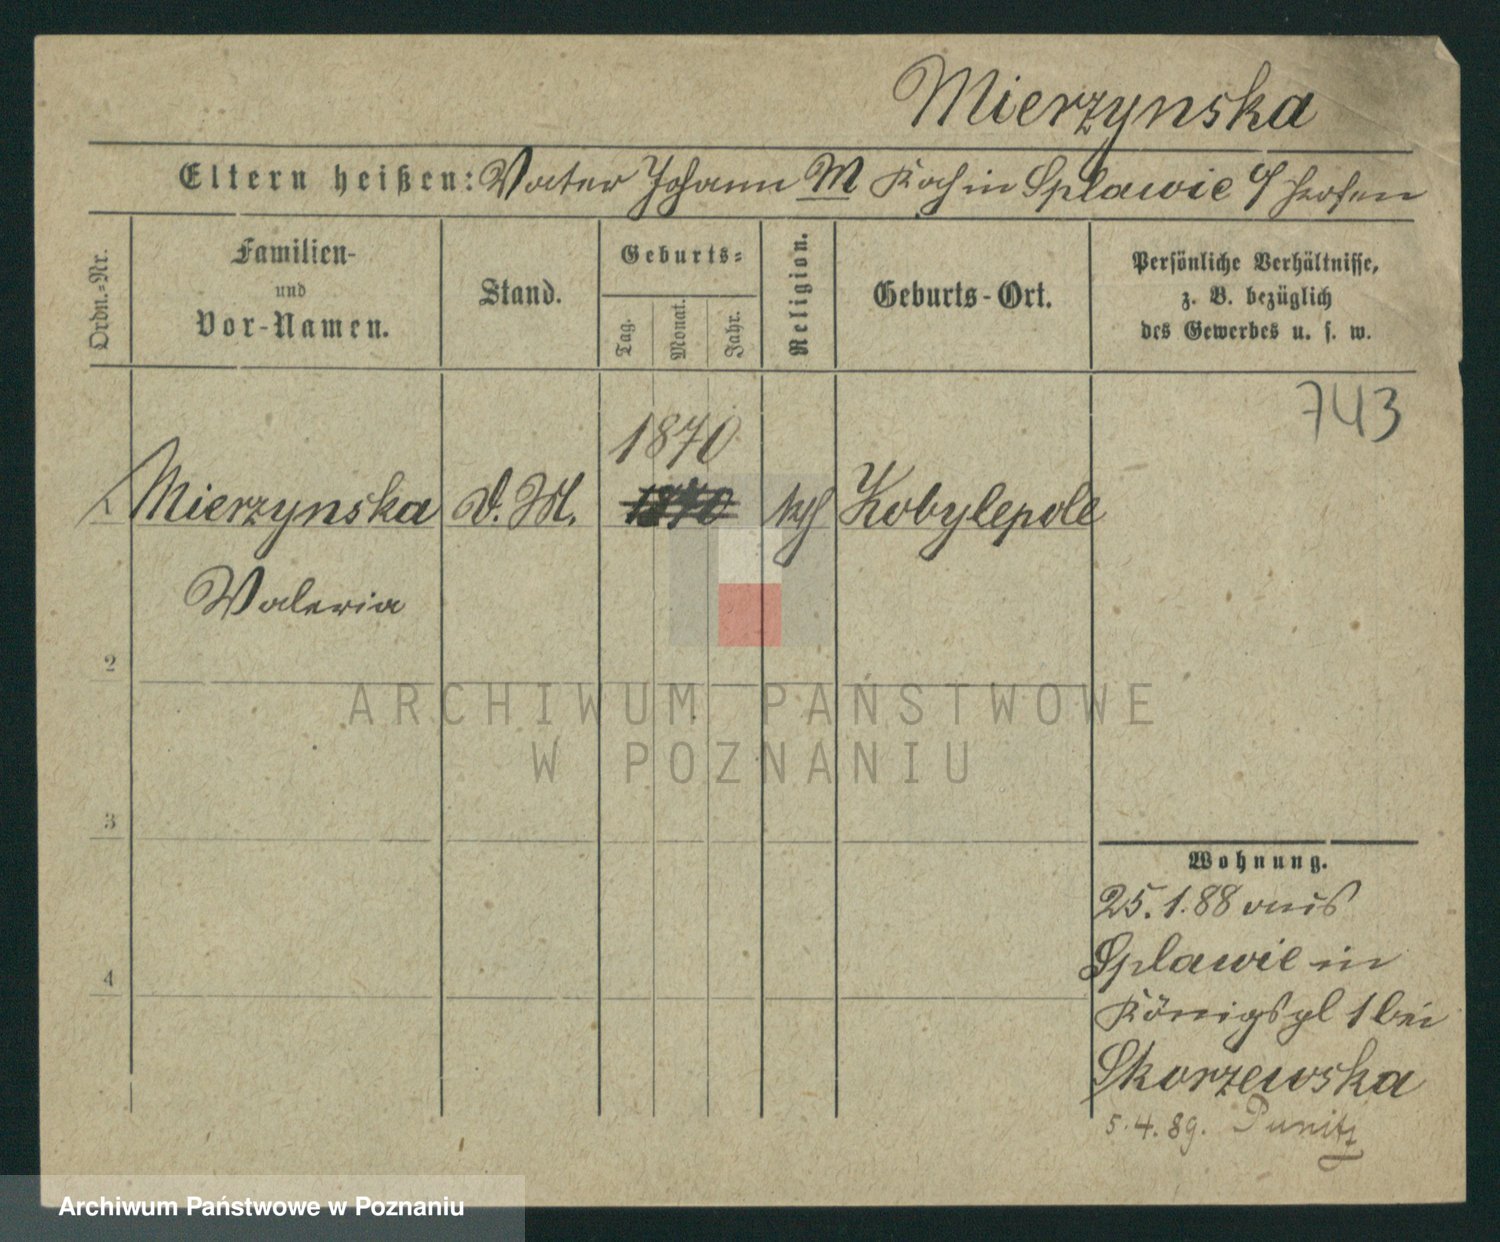 Mierzynska
Eltern heißen: Vater Johann M Koch in Splawie
Ordn.-Nr.
Familien-
und
Vor-Namen.
Stand.
Geburts-
Tag.
Monat.
Jahr.
Religion.
Geburts-Ort.
Persönliche Verhältnisse,
z. B. bezüglich
des Gewerbes u. s. w.
743
1870
1 Mierzynska D. M. 1870 kth Kobylepole
Waleria
2
ARCHIWUM PAŃSTWOWE
W POZNANIU
3
4
Wohnung.
25.1.88 aus
Splawie in
Königspl 1 bei
Skorzewska
5.4.89. Punitz
Archiwum Państwowe w Poznaniu